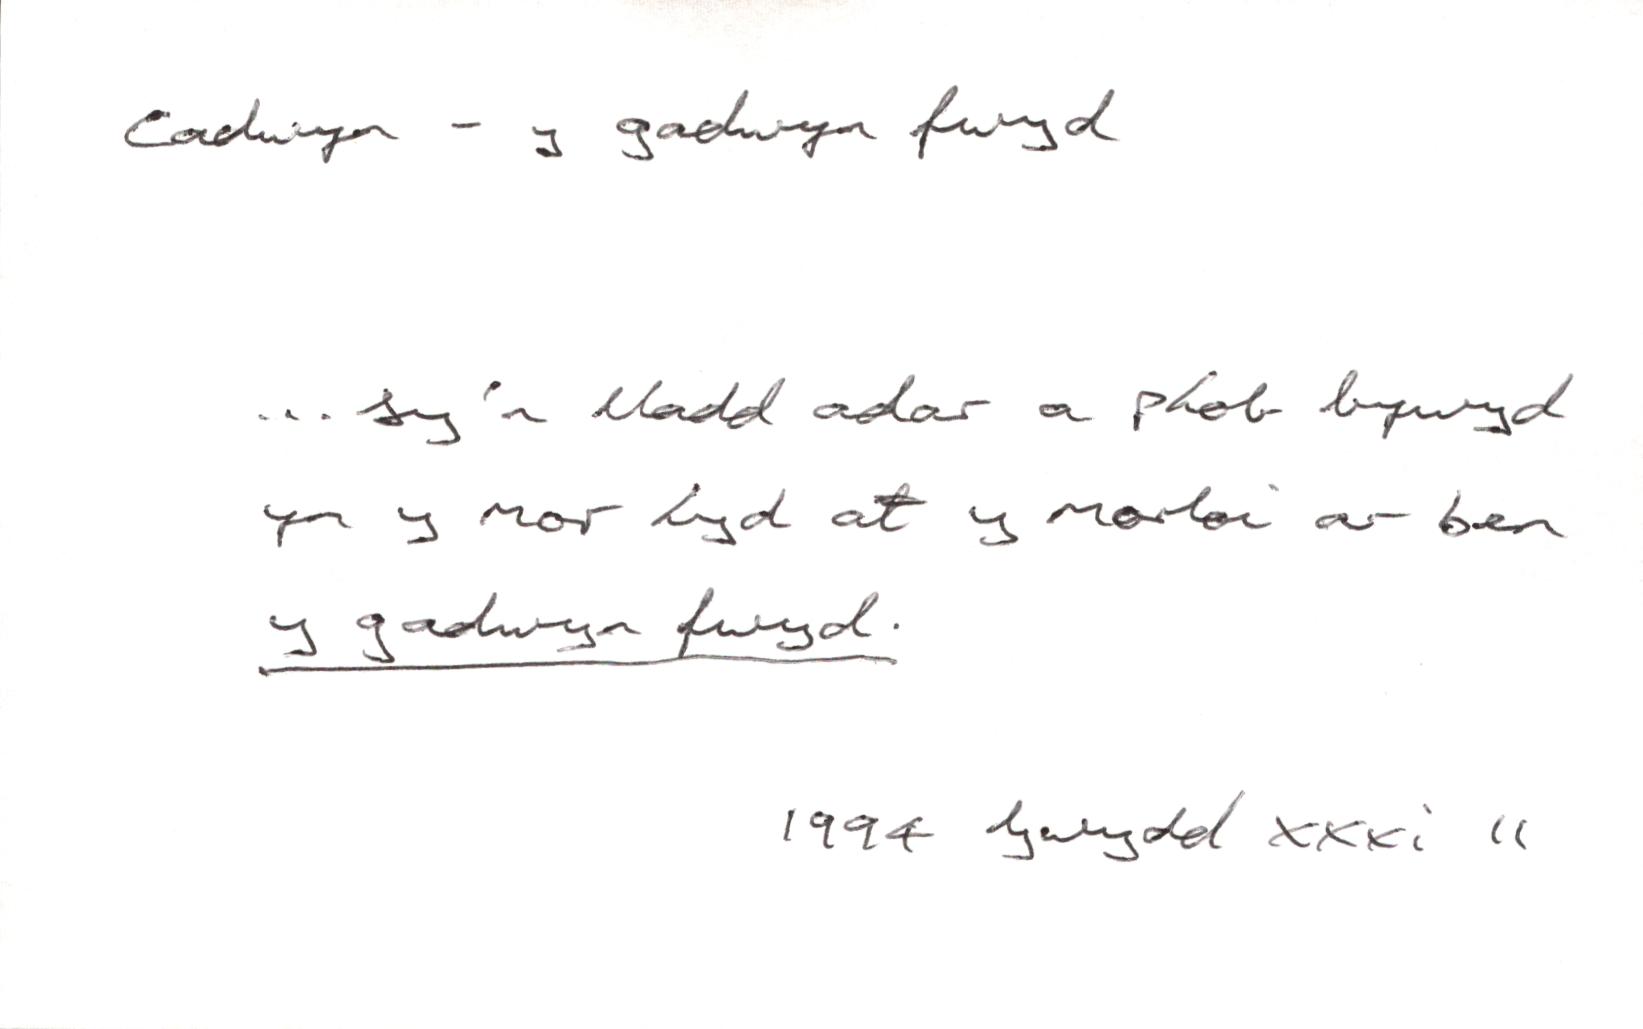 Cadwyn - y gadwyn fwyd
... sy'n lladd adar a phob bywyd
yn y mor hyd at y morloi ar ben
y gadwyn fwyd.
1994 Gwydd xxxi 11